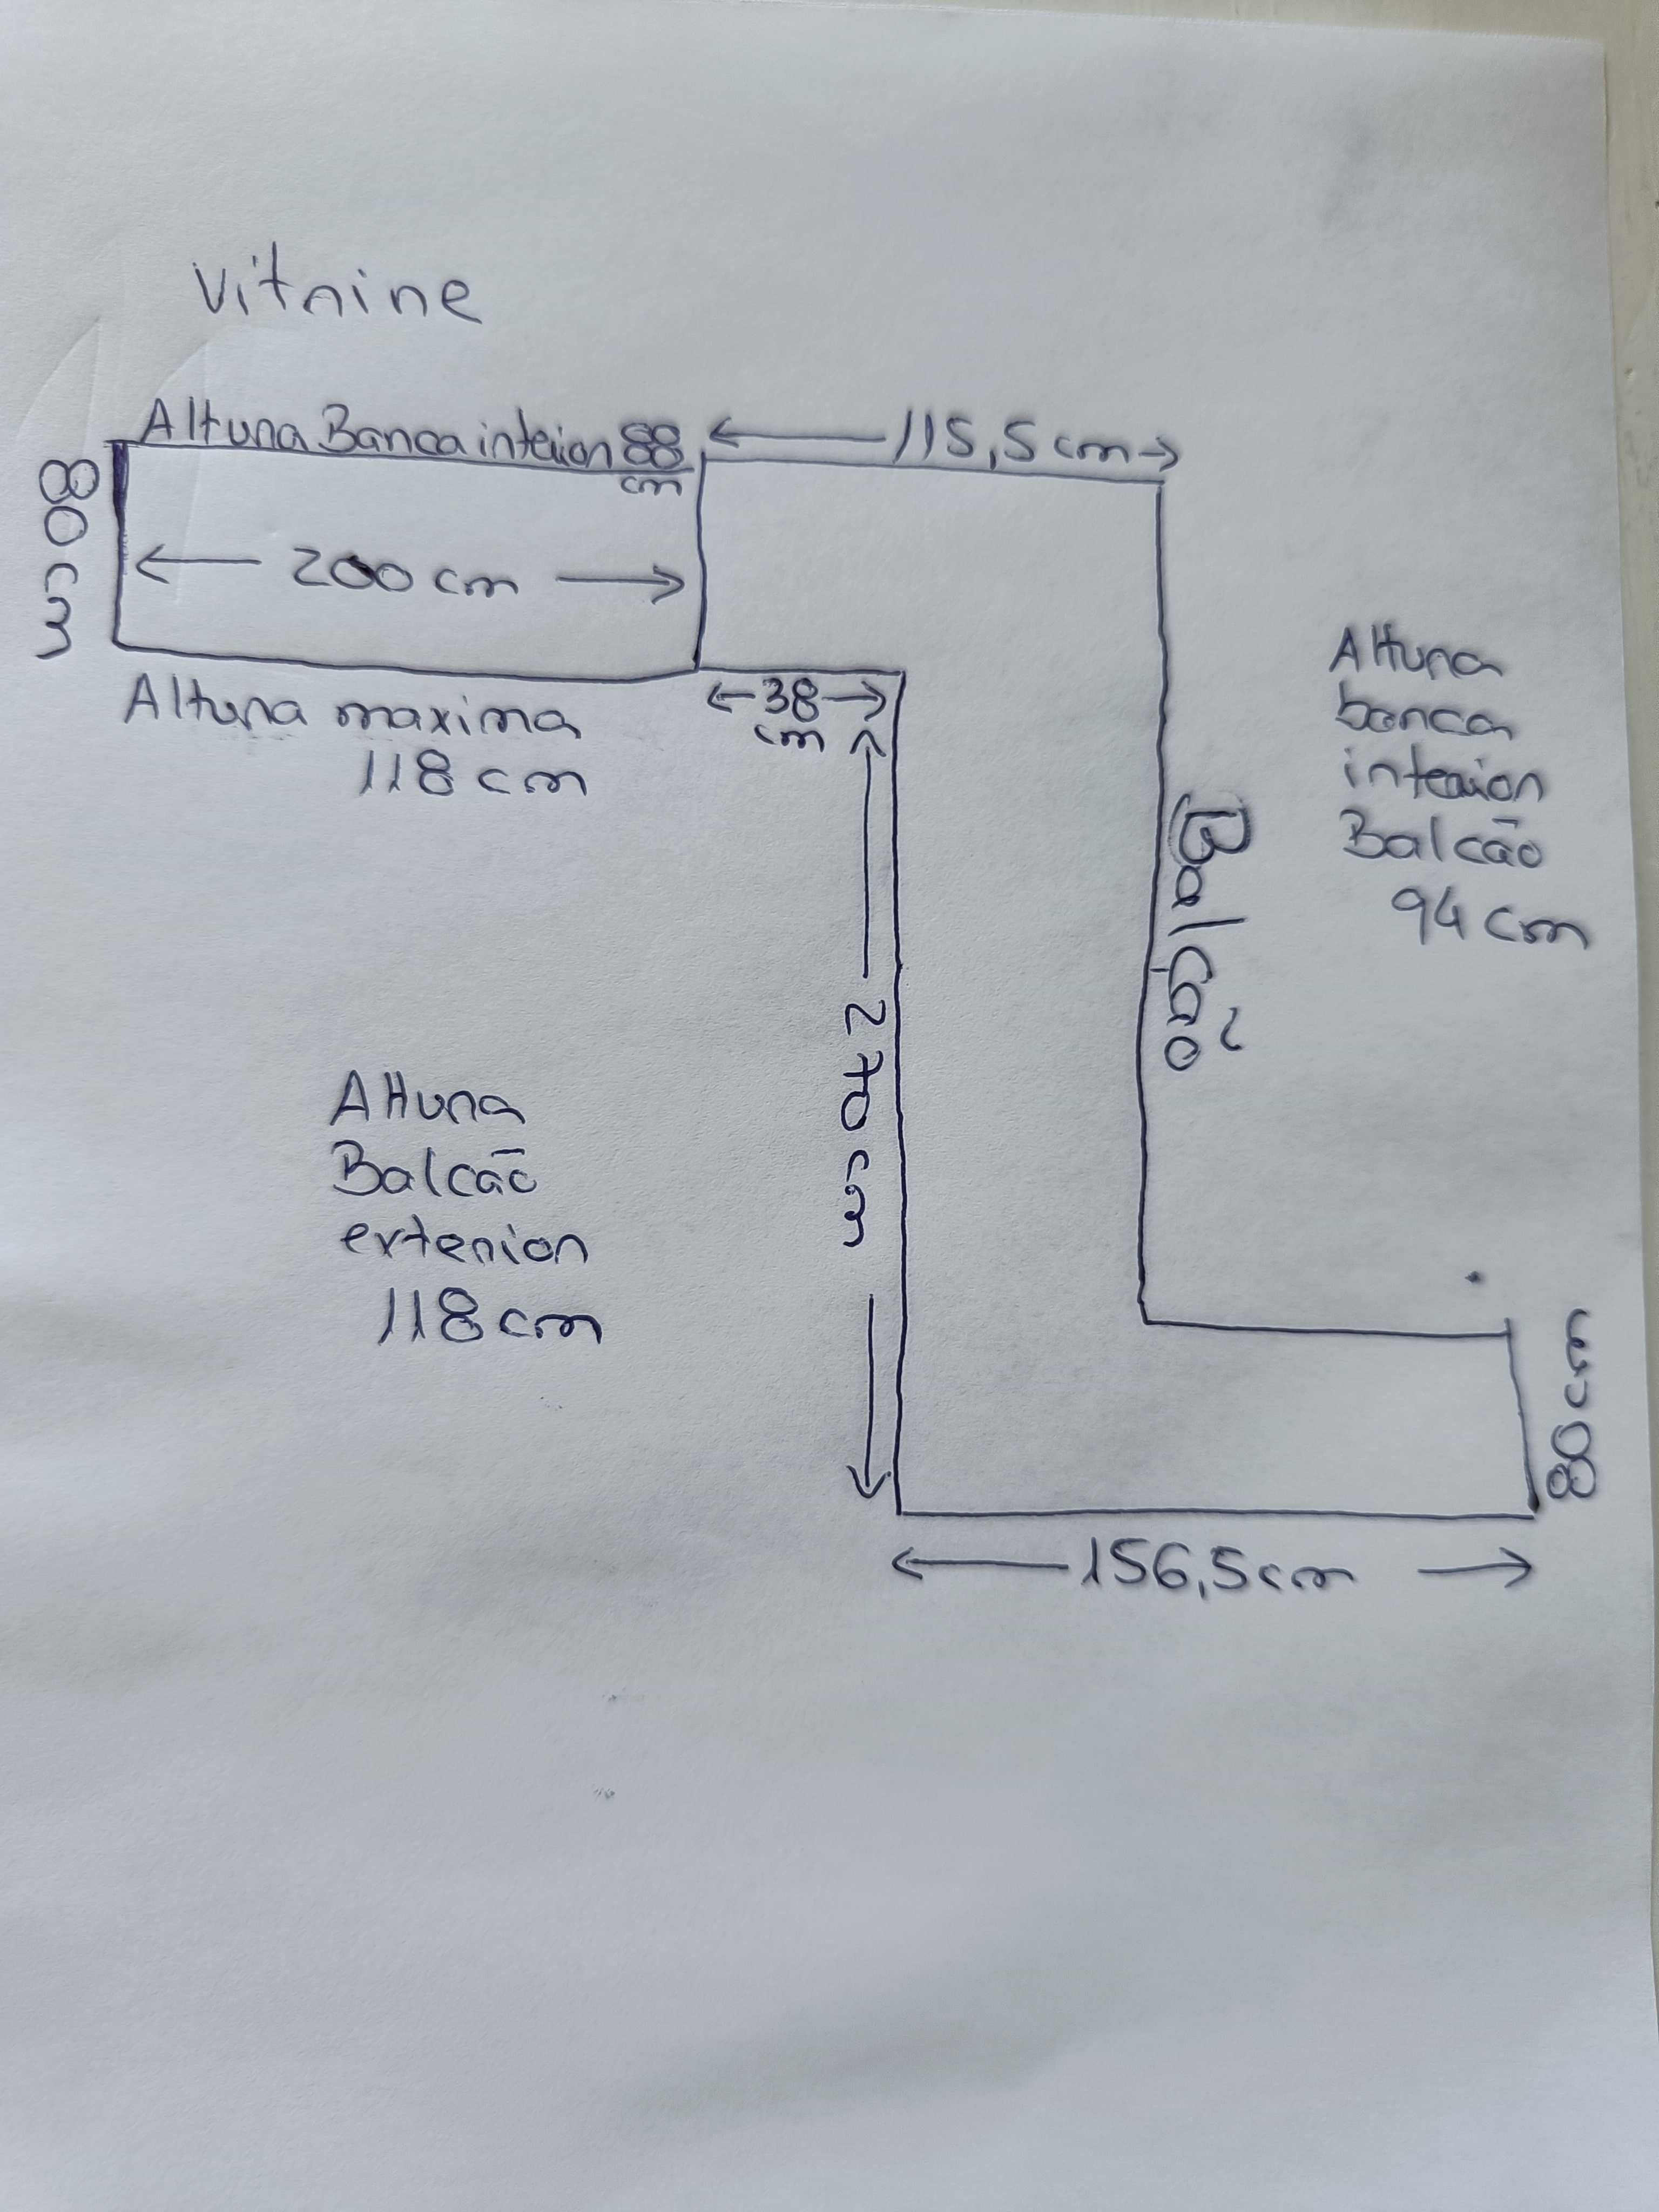 Vitrine
Altura Banca interior 88
cm
115,5 cm
80 cm
200 cm
Altura maxima
118 cm
38
cm
Altura
banca
interior
Balcão
94 cm
Balcão
270 cm
Altura
Balcão
exterior
118 cm
80 cm
156,5 cm